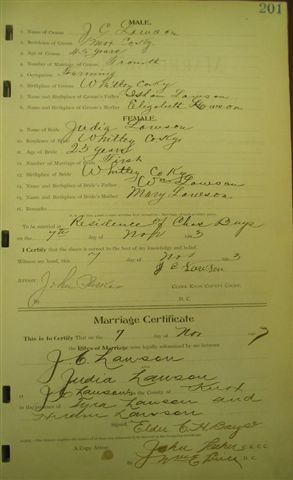 201
MALE.
1. Name of Groom J C Lawson
2. Residence of Groom Knox Co Ky
3. Age of Groom 45 years
4. Number of Marriage of Groom Fourth
5. Occupation Farming
6. Birthplace of Groom Whitley Co Ky
7. Name and Birthplace of Groom's Father Lawson
8. Name and Birthplace of Groom's Mother Elizabeth Lawson
FEMALE.
9. Name of Bride Judia Lawson
10. Residence of Bride Whitley Co Ky
11. Age of Bride 23 years
12. Number of Marriage of Bride First
13. Birthplace of Bride Whitley Co Ky
14. Name and Birthplace of Bride's Father Lawson
15. Name and Birthplace of Bride's Mother Mary Lawson
16. Remarks
To be married at Residence of Chas Bays
on the 7th day of Nov 3
I Certify that the above is correct to the best of my knowledge and belief.
Witness my hand, this 7 day of Nov 3
J C Lawson
Attest: CLERK KNOX COUNTY COURT.
John
By D. C.
Marriage Certificate
This is to Certify That on the 7 day of Nov
the Rites of Marriage were legally solemnized by me between
J C Lawson
and Judia Lawson
at J C Lawson in the County of Knox
in the presence of Tyra Lawson and
Hiram Lawson
Signed Elder C H Bays
A Copy Attest: John
D.C.